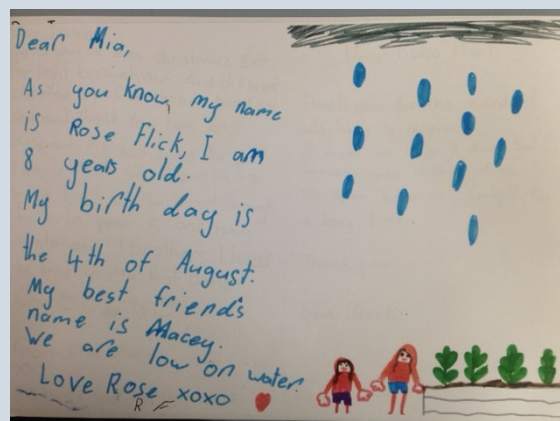 Dear Mia,
As you know, my name
is Rose Flick, I am
8 years old.
My birth day is
the 4th of August.
My best friend's
name is Macey.
We are low on water.
Love Rose xoxo
R